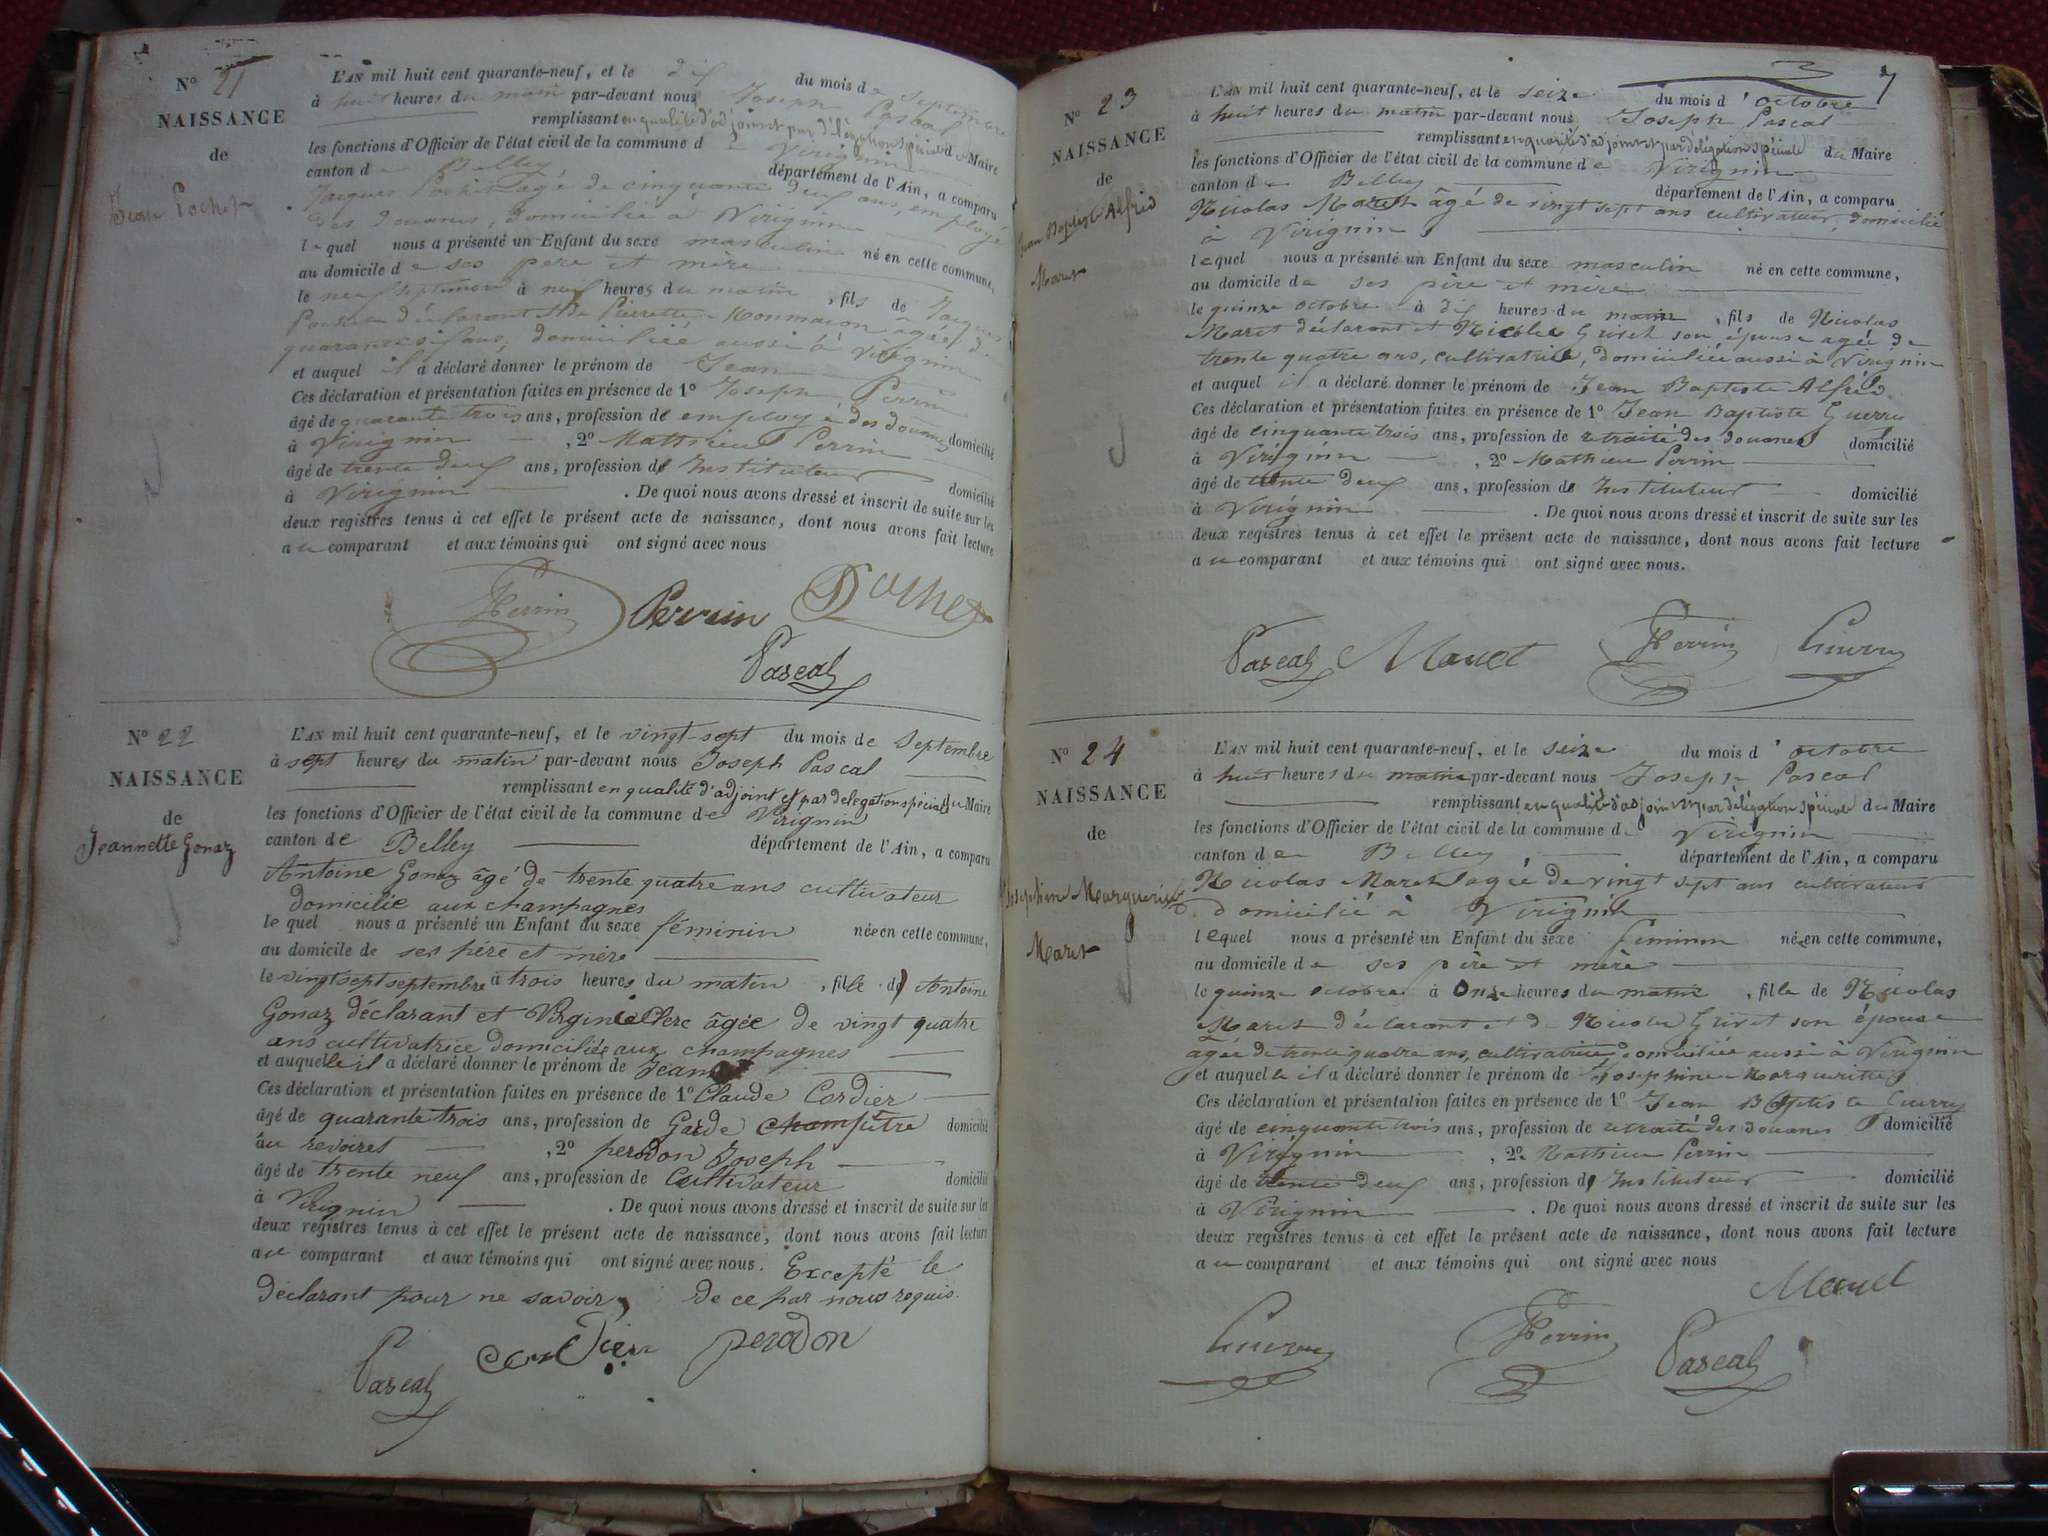 N° 21
NAISSANCE
de
Jean Pochet
L'AN mil huit cent quarante-neuf, et le dix du mois de septembre
à huit heures du matin par-devant nous Joseph Pascal
remplissant en qualité d'adjoint et par délégation spéciale du Maire
les fonctions d'Officier de l'état civil de la commune de Virignin
canton de Belley département de l'Ain, a comparu
Jacques Pochet âgé de cinquante deux ans, employé
des douanes, domicilié à Virignin
lequel nous a présenté un Enfant du sexe masculin né en cette commune,
au domicile de ses père et mère
le neuf septembre à neuf heures du matin, fils de Jacques
Pochet déclarant et de Pierrette âgée de
quarante six ans, domiciliée aussi à Virignin
et auquel il a déclaré donner le prénom de Jean
Ces déclaration et présentation faites en présence de 1° Joseph Perrin
âgé de quarante trois ans, profession de employé des douanes domicilié
à Virignin, 2° Mathieu Perrin
âgé de trente deux ans, profession de Instituteur domicilié
à Virignin. De quoi nous avons dressé et inscrit de suite sur les
deux registres tenus à cet effet le présent acte de naissance, dont nous avons fait lecture
au comparant et aux témoins qui ont signé avec nous
Perrin Perrin Pochet
Pascal
N° 22
NAISSANCE
de
Jeannette Gonaz
L'AN mil huit cent quarante-neuf, et le vingt-sept du mois de septembre
à sept heures du matin par-devant nous Joseph Pascal
remplissant en qualité d'adjoint et par delegation spéciale du Maire
les fonctions d'Officier de l'état civil de la commune de Virignin
canton de Belley département de l'Ain, a comparu
Antoine Gonaz âgé de trente quatre ans cultivateur
domicilié aux champagnes
le quel nous a présenté un Enfant du sexe féminin née en cette commune,
au domicile de ses père et mère
le vingt sept septembre à trois heures du matin, fille de Antoine
Gonaz déclarant et Virginie Clerc âgée de vingt quatre
ans cultivatrice domiciliée aux champagnes
et auquelle il a déclaré donner le prénom de
Ces déclaration et présentation faites en présence de 1° Claude Cordier
âgé de quarante trois ans, profession de Garde champêtre domicilié
au revoiret, 2° perodon Joseph
âgé de trente neuf ans, profession de Cultivateur domicilié
à Virignin. De quoi nous avons dressé et inscrit de suite sur les
deux registres tenus à cet effet le présent acte de naissance, dont nous avons fait lecture
au comparant et aux témoins qui ont signé avec nous. Excepté le
déclarant pour ne savoir, de ce par nous requis.
Pascal Cordier perodon
7
N° 23
NAISSANCE
de
Jean Baptiste Alfred
Maret
L'AN mil huit cent quarante-neuf, et le seize du mois d'octobre
à huit heures du matin par-devant nous Joseph Pascal
remplissant en qualité d'adjoint et par délégation spéciale du Maire
les fonctions d'Officier de l'état civil de la commune de Virignin
canton de Belley département de l'Ain, a comparu
Nicolas Maret âgé de vingt sept ans cultivateur, domicilié
à Virignin
lequel nous a présenté un Enfant du sexe masculin né en cette commune,
au domicile de ses père et mère
le quinze octobre à dix heures du matin, fils de Nicolas
Maret déclarant et Nicole Grivet son épouse agée de
trente quatre ans, cultivatrice, domiciliée aussi à Virignin
et auquel il a déclaré donner le prénom de Jean Baptiste Alfred
Ces déclaration et présentation faites en présence de 1° Jean Baptiste Guerry
âgé de cinquante trois ans, profession de retraité des douanes domicilié
à Virignin, 2° Mathieu Perrin
âgé de trente deux ans, profession de Instituteur domicilié
à Virignin. De quoi nous avons dressé et inscrit de suite sur les
deux registres tenus à cet effet le présent acte de naissance, dont nous avons fait lecture
au comparant et aux témoins qui ont signé avec nous.
Pascal Maret Perrin Guerry
N° 24
NAISSANCE
de
Josephine Marguerite
Maret
L'AN mil huit cent quarante-neuf, et le seize du mois d'octobre
à huit heures du matin par-devant nous Joseph Pascal
remplissant en qualité d'adjoint et par délégation spéciale du Maire
les fonctions d'Officier de l'état civil de la commune de Virignin
canton de Belley département de l'Ain, a comparu
Nicolas Maret agée de vingt sept ans cultivateur
domicilié à Virignin
lequel nous a présenté un Enfant du sexe féminin née en cette commune,
au domicile de ses père et mère
le quinze octobre à Onze heures du matin, fille de Nicolas
Maret déclarant et de Nicole Grivet son épouse
âgée de trente quatre ans, cultivatrice domiciliée aussi à Virignin
et auquelle il a déclaré donner le prénom de Josephine Marguerite
Ces déclaration et présentation faites en présence de 1° Jean Baptiste Guerry
âgé de cinquante trois ans, profession de retraité des douanes domicilié
à Virignin, 2° Mathieu Perrin
âgé de trente deux ans, profession de Instituteur domicilié
à Virignin. De quoi nous avons dressé et inscrit de suite sur les
deux registres tenus à cet effet le présent acte de naissance, dont nous avons fait lecture
au comparant et aux témoins qui ont signé avec nous
Maret
Guerry Perrin Pascal